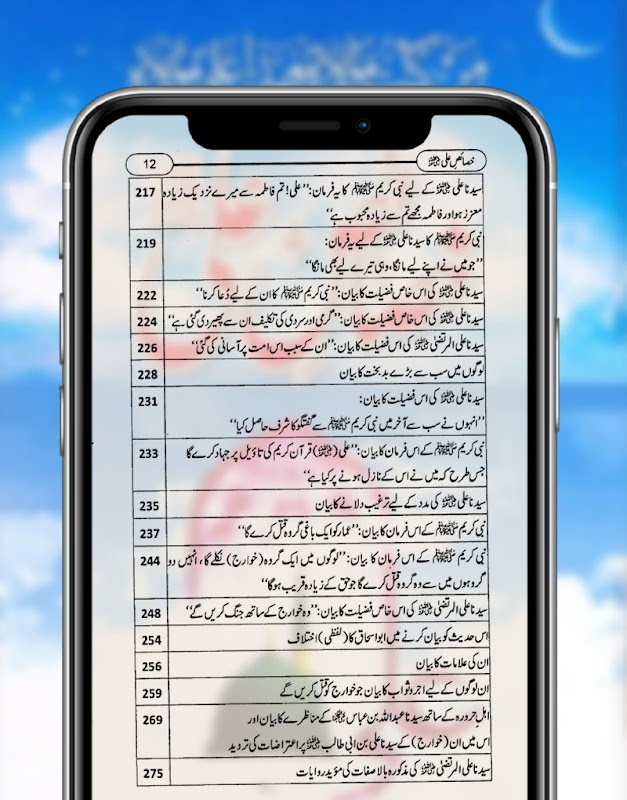 خصائصِ علی رضی اللہ عنہ
12
سیدنا علی رضی اللہ عنہ کے لیے نبی کریم ﷺ کا یہ فرمان: ’’علی! تم فاطمہ سے میرے نزدیک زیادہ
217
معزز ہو اور فاطمہ مجھے تم سے زیادہ محبوب ہے‘‘
نبی کریم ﷺ کا سیدنا علی رضی اللہ عنہ کے لیے یہ فرمان:
219
’’جو میں نے اپنے لیے مانگا، وہی تیرے لیے بھی مانگا‘‘
سیدنا علی رضی اللہ عنہ کی اس خاص فضیلت کا بیان: ’’نبی کریم ﷺ کا ان کے لیے دُعا کرنا‘‘
222
سیدنا علی رضی اللہ عنہ کی اس خاص فضیلت کا بیان: ’’گرمی اور سردی کی تکلیف ان سے پھیر دی گئی ہے‘‘
224
سیدنا علی المرتضیٰ رضی اللہ عنہ کی اس فضیلت کا بیان: ’’ان کے سبب اس امت پر آسانی کی گئی‘‘
226
لوگوں میں سب سے بڑے بد بخت کا بیان
228
سیدنا علی رضی اللہ عنہ کی اس فضیلت کا بیان:
231
’’انہوں نے سب سے آخر میں نبی کریم ﷺ سے گفتگو کا شرف حاصل کیا‘‘
نبی کریم ﷺ کے اس فرمان کا بیان: ’’علی (رضی اللہ عنہ) قرآن کریم کی تاویل پر جہاد کرے گا
233
جس طرح کہ میں نے اس کے نازل ہونے پر کیا ہے‘‘
سیدنا علی رضی اللہ عنہ کی مدد کے لیے ترغیب دلانے کا بیان
235
نبی کریم ﷺ کے اس فرمان کا بیان: ’’عمار کو ایک باغی گروہ قتل کرے گا‘‘
237
نبی کریم ﷺ کے اس فرمان کا بیان: ’’لوگوں میں ایک گروہ (خوارج) نکلے گا، انہیں دو
244
گروہوں میں سے وہ گروہ قتل کرے گا جو حق کے زیادہ قریب ہوگا‘‘
سیدنا علی المرتضیٰ رضی اللہ عنہ کی اس خاص فضیلت کا بیان: ’’وہ خوارج کے ساتھ جنگ کریں گے‘‘
248
اس حدیث کو بیان کرنے میں ابو اسحاق کا (لفظی) اختلاف
254
ان کی علامات کا بیان
256
ان لوگوں کے لیے اجر و ثواب کا بیان جو خوارج کو قتل کریں گے
259
اہل حرورہ کے ساتھ سیدنا عبداللہ بن عباس رضی اللہ عنہ کے مناظرے کا بیان اور
269
اس میں ان (خوارج) کے سیدنا علی بن ابی طالب رضی اللہ عنہ پر اعتراضات کی تردید
سیدنا علی المرتضیٰ رضی اللہ عنہ کی مذکورہ بالا صفات کی مؤید روایات
275